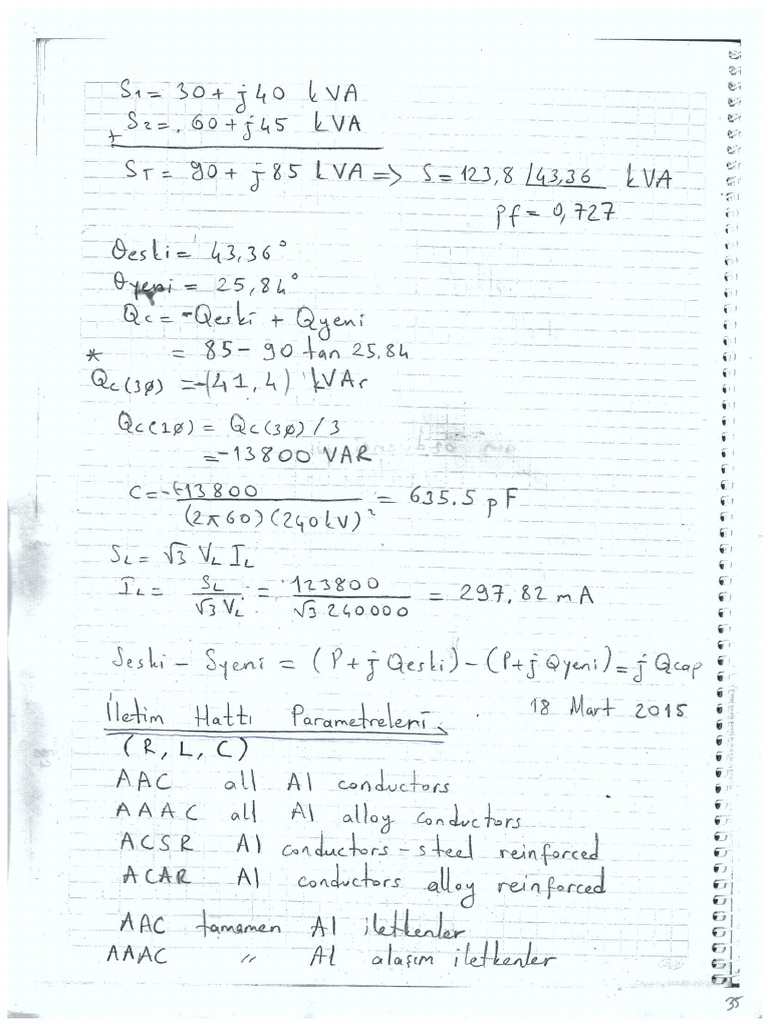 S1 = 30 + j40 kVA
+ S2 = 60 + j45 kVA
ST = 90 + j85 kVA => S = 123,8 ∠43,36 kVA
pf = 0,727
θeski = 43,36°
θyeni = 25,84°
Qc = -Qeski + Qyeni
* = 85 - 90 tan 25,84
Qc(3ø) = -(41,4) kVAr
Qc(1ø) = Qc(3ø) / 3
= -13800 VAR
C = -(-13800 / (2π60)(240kV)² = 635.5 pF
SL = √3 VL IL
IL = SL / √3 VL = 123800 / √3 240000 = 297,82 mA
Seski - Syeni = (P + jQeski) - (P + jQyeni) = jQcap
18 Mart 2015
İletim Hattı Parametreleri
(R, L, C)
AAC all Al conductors
AAAC all Al alloy conductors
ACSR Al conductors - steel reinforced
ACAR Al conductors alloy reinforced
AAC tamamen Al iletkenler
AAAC " Al alaşım iletkenler
35